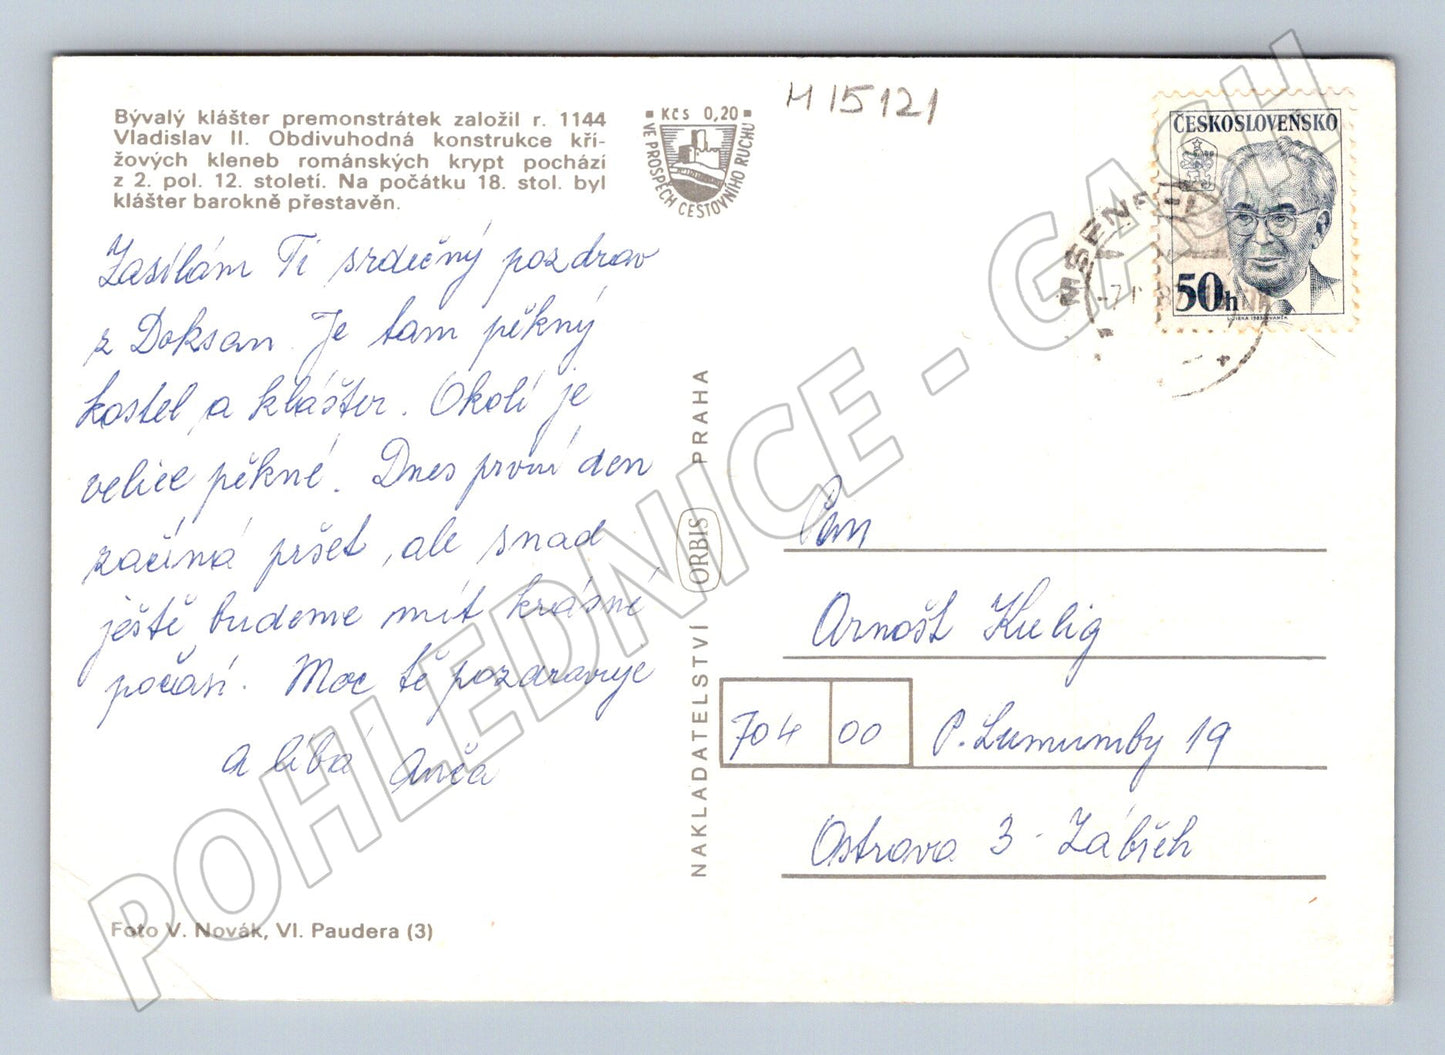 Bývalý klášter premonstrátek založil r. 1144
Vladislav II. Obdivuhodná konstrukce kří-
žových kleneb románských krypt pochází
z 2. pol. 12. století. Na počátku 18. stol. byl
klášter barokně přestavěn.
Kčs 0,20
VE PROSPĚCH CESTOVNÍHO RUCHU
M 15121
ČESKOSLOVENSKO
50h
MŠENÉ
Zasílám Ti srdečný pozdrav
z Doksan. Je tam pěkný
kostel a klášter. Okolí je
velice pěkné. Dnes první den
začíná pršet, ale snad
ještě budeme mít krásné
počasí. Moc tě pozdravuje
a líbá Anča
NAKLADATELSTVÍ ORBIS PRAHA
Pan
Arnošt Kulig
704 00 P. Lumumby 19
Ostrava 3 - Zábřeh
Foto V. Novák, Vl. Paudera (3)
POHLEDNICE - GACH